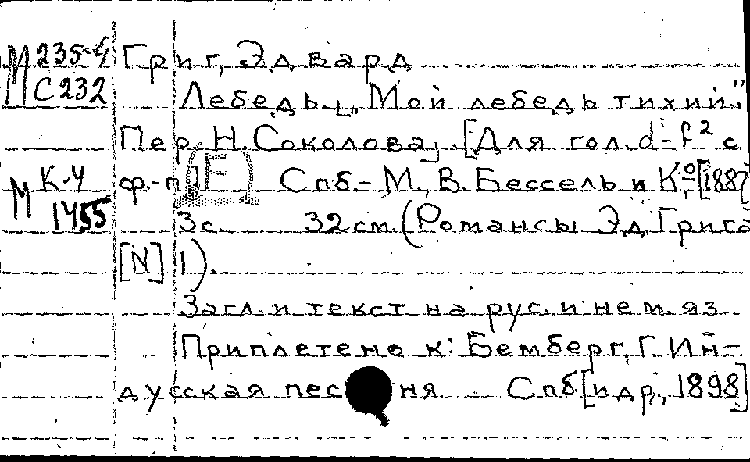 М 235-4 Григ, Эдвард
С 232 Лебедь. „Мой лебедь тихий.”
Пер. Н. Соколова. [Для гол. d-f² с
М К-4 ф.-п. (F) Спб.-М., В. Бессель и К-о [1887]
1455 3 с. 32 см. (Романсы Эд. Грига
[N] 1).
Загл. и текст на рус. и нем. яз.
Приплетено к: Бемберг, Г. Ин-
дусская песня Спб [и др., 1898]